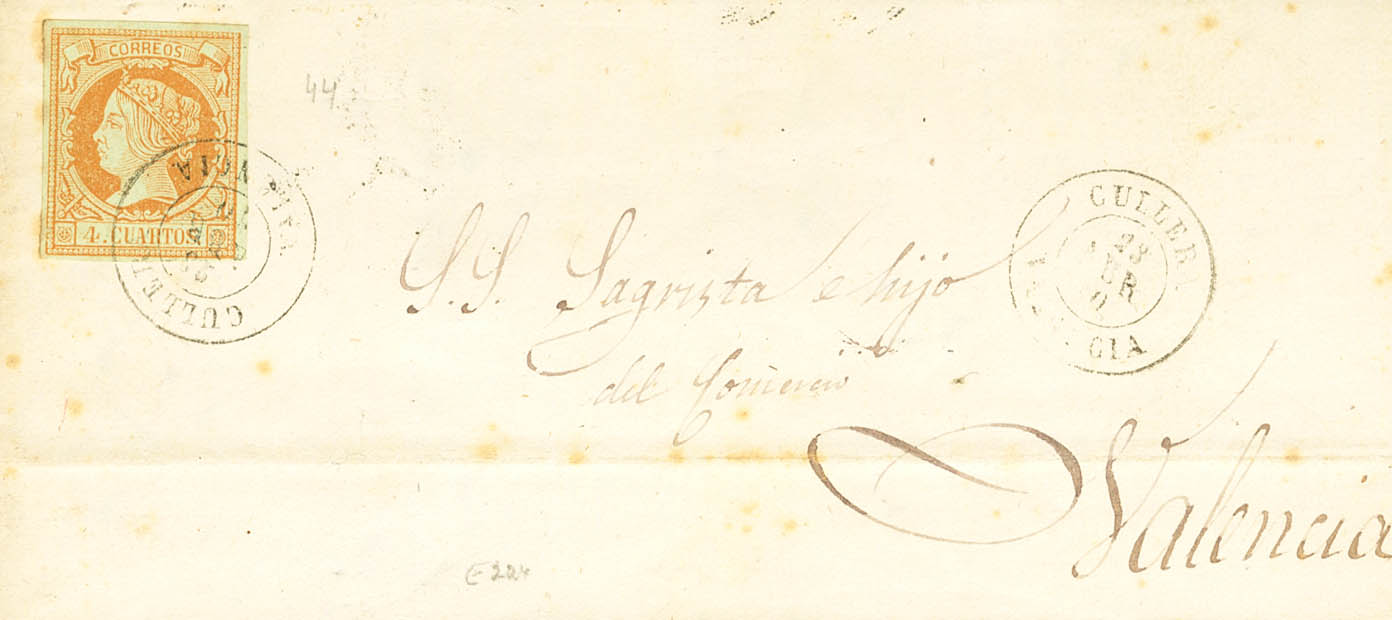 CORREOS
4. CUARTOS
44
CULLER
23
CIA
S.S. Sagrista e hijo
del Comercio
Valencia
E224